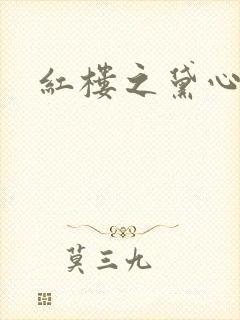 紅樓之黛心
莫三九